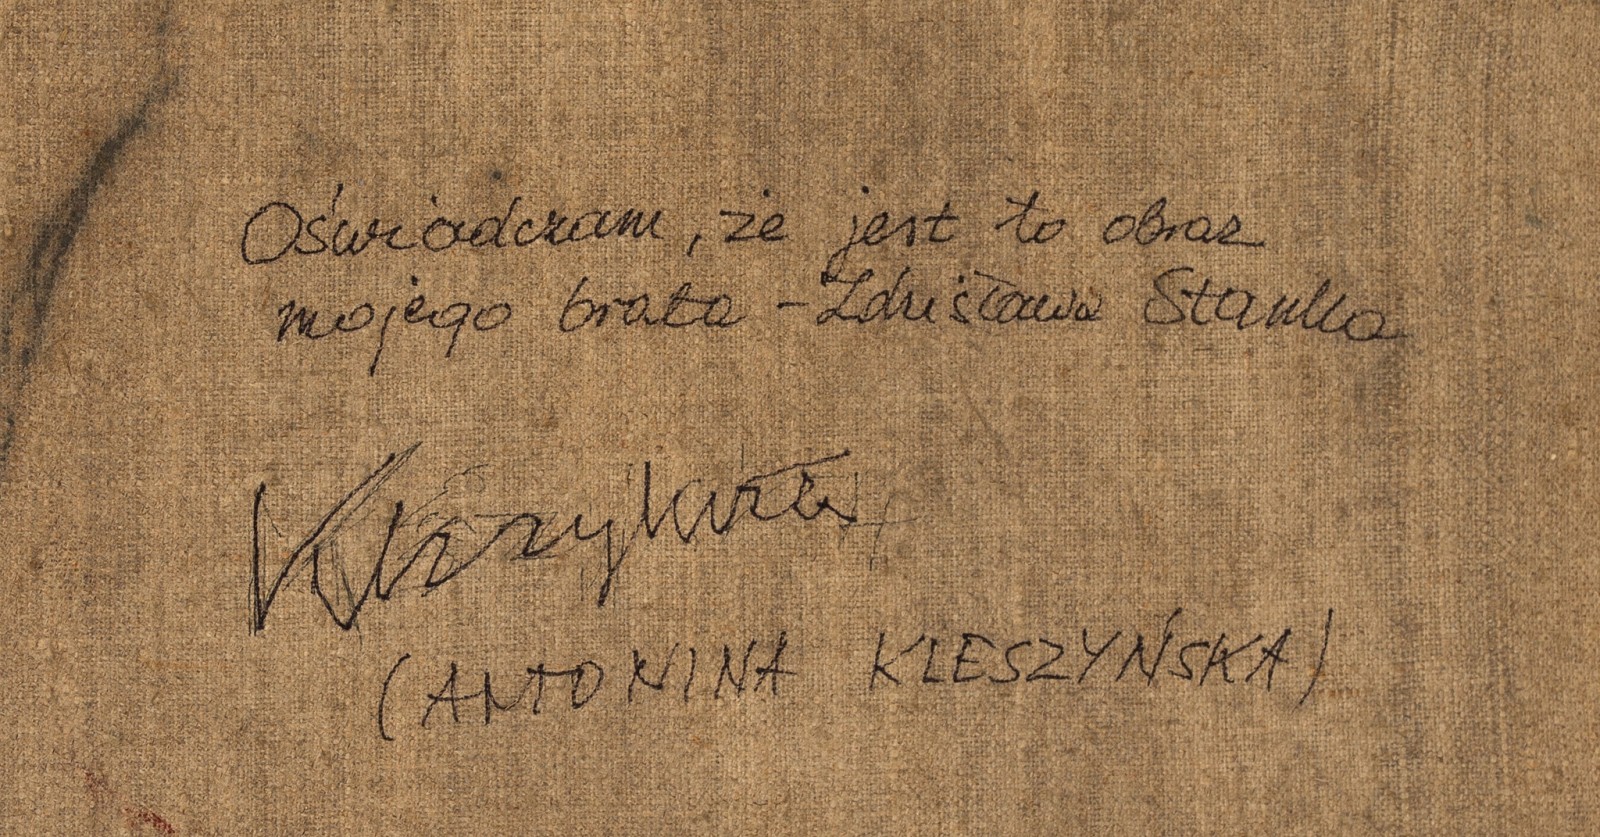 Oświadczam, że jest to obraz
mojego brata - Zdzisława Stanka
(ANTONINA KLESZYŃSKA)